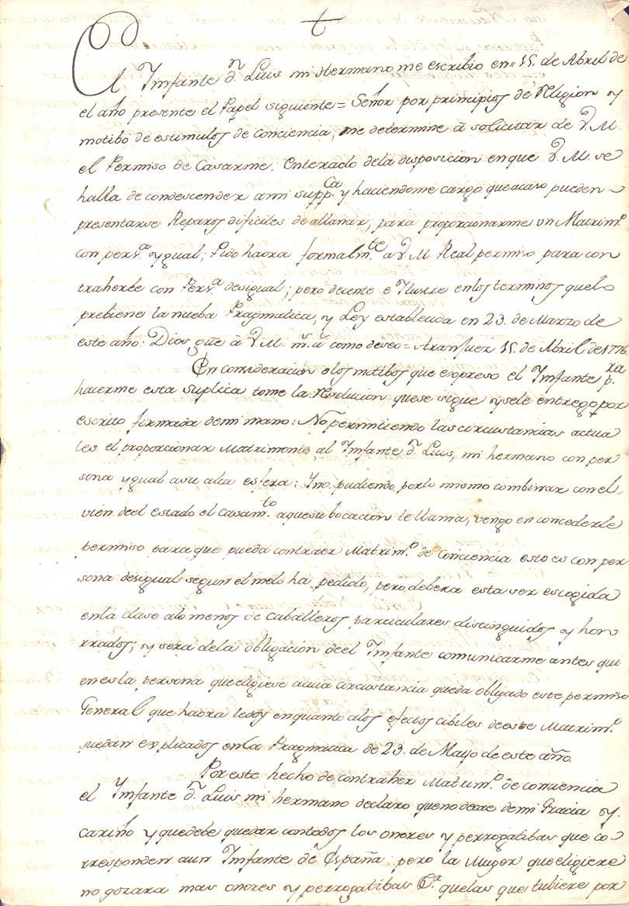 El Infante dn Luis mi Hermano, me escribio en 15 de Abril de
el año presente el Papel siguiente = Señor por principios de Religion y
motibo de estimulos de conciencia, me determine à solicitar de V.M.
el Permiso de Casarme. Enterado dela disposicion enque V.M. se
halla de condescender ami suppca y haciendome cargo queacaso pueden
presentarse Reparos dificiles de allanar, para proporcionarme un Matrimo
con persa ygual; Pido haora formalmte a V.M Real permiso para con
traherle con Persa desigual; pero decente e Ylustre enlos terminos quelo
prebiene la nueba Pragmatica, y Ley establecida en 23. de Marzo de
este año. Dios gue à V.M. ms as como deseo = Aranjuez 15. de Abril de 1776.
En consideracion alos motibos que expreso el Infante pra
hacerme esta suplica tome la Resolucion quese sigue ysele entregò por
escrito formada demi mano: No permitiendo las circustancias actua
les el proporcionar Matrimonio al Infante dn Luis, mi hermano con per
sona ygual asu alta esfera: Yno pudiendo porlo mismo combinar con el
vien deel estado el Casamto aquesu bocacion le llama, vengo en concederle
permiso para que pueda contraer Matrimo de conciencia esto es con per
sona desigual segun el melo ha pedido, pero debera esta ser escogida
enla clase alo menos de caballeros particulares distinguidos y hon
rrados; y sera dela obligacion deel Infante comunicarme antes qui
en es la persona queeligiese acuia circustancia queda obligado este permiso
General que haora ledoy enquanto alos efectos cibiles de este Matrimo
quedan explicados enla Pragmatica de 23. de Marzo de este año.
Por este hecho de contraher Matrimo de conciencia
el Infante dn Luis mi hermano declaro queno decae de mi Gracia y
cariño y quedebe quedar contodos los onores y perrogatibas que co-
rresponden aun Infante de España: pero la Muger queeligiere
no gozara mas onores y perrogatibas quelas que tubiere por